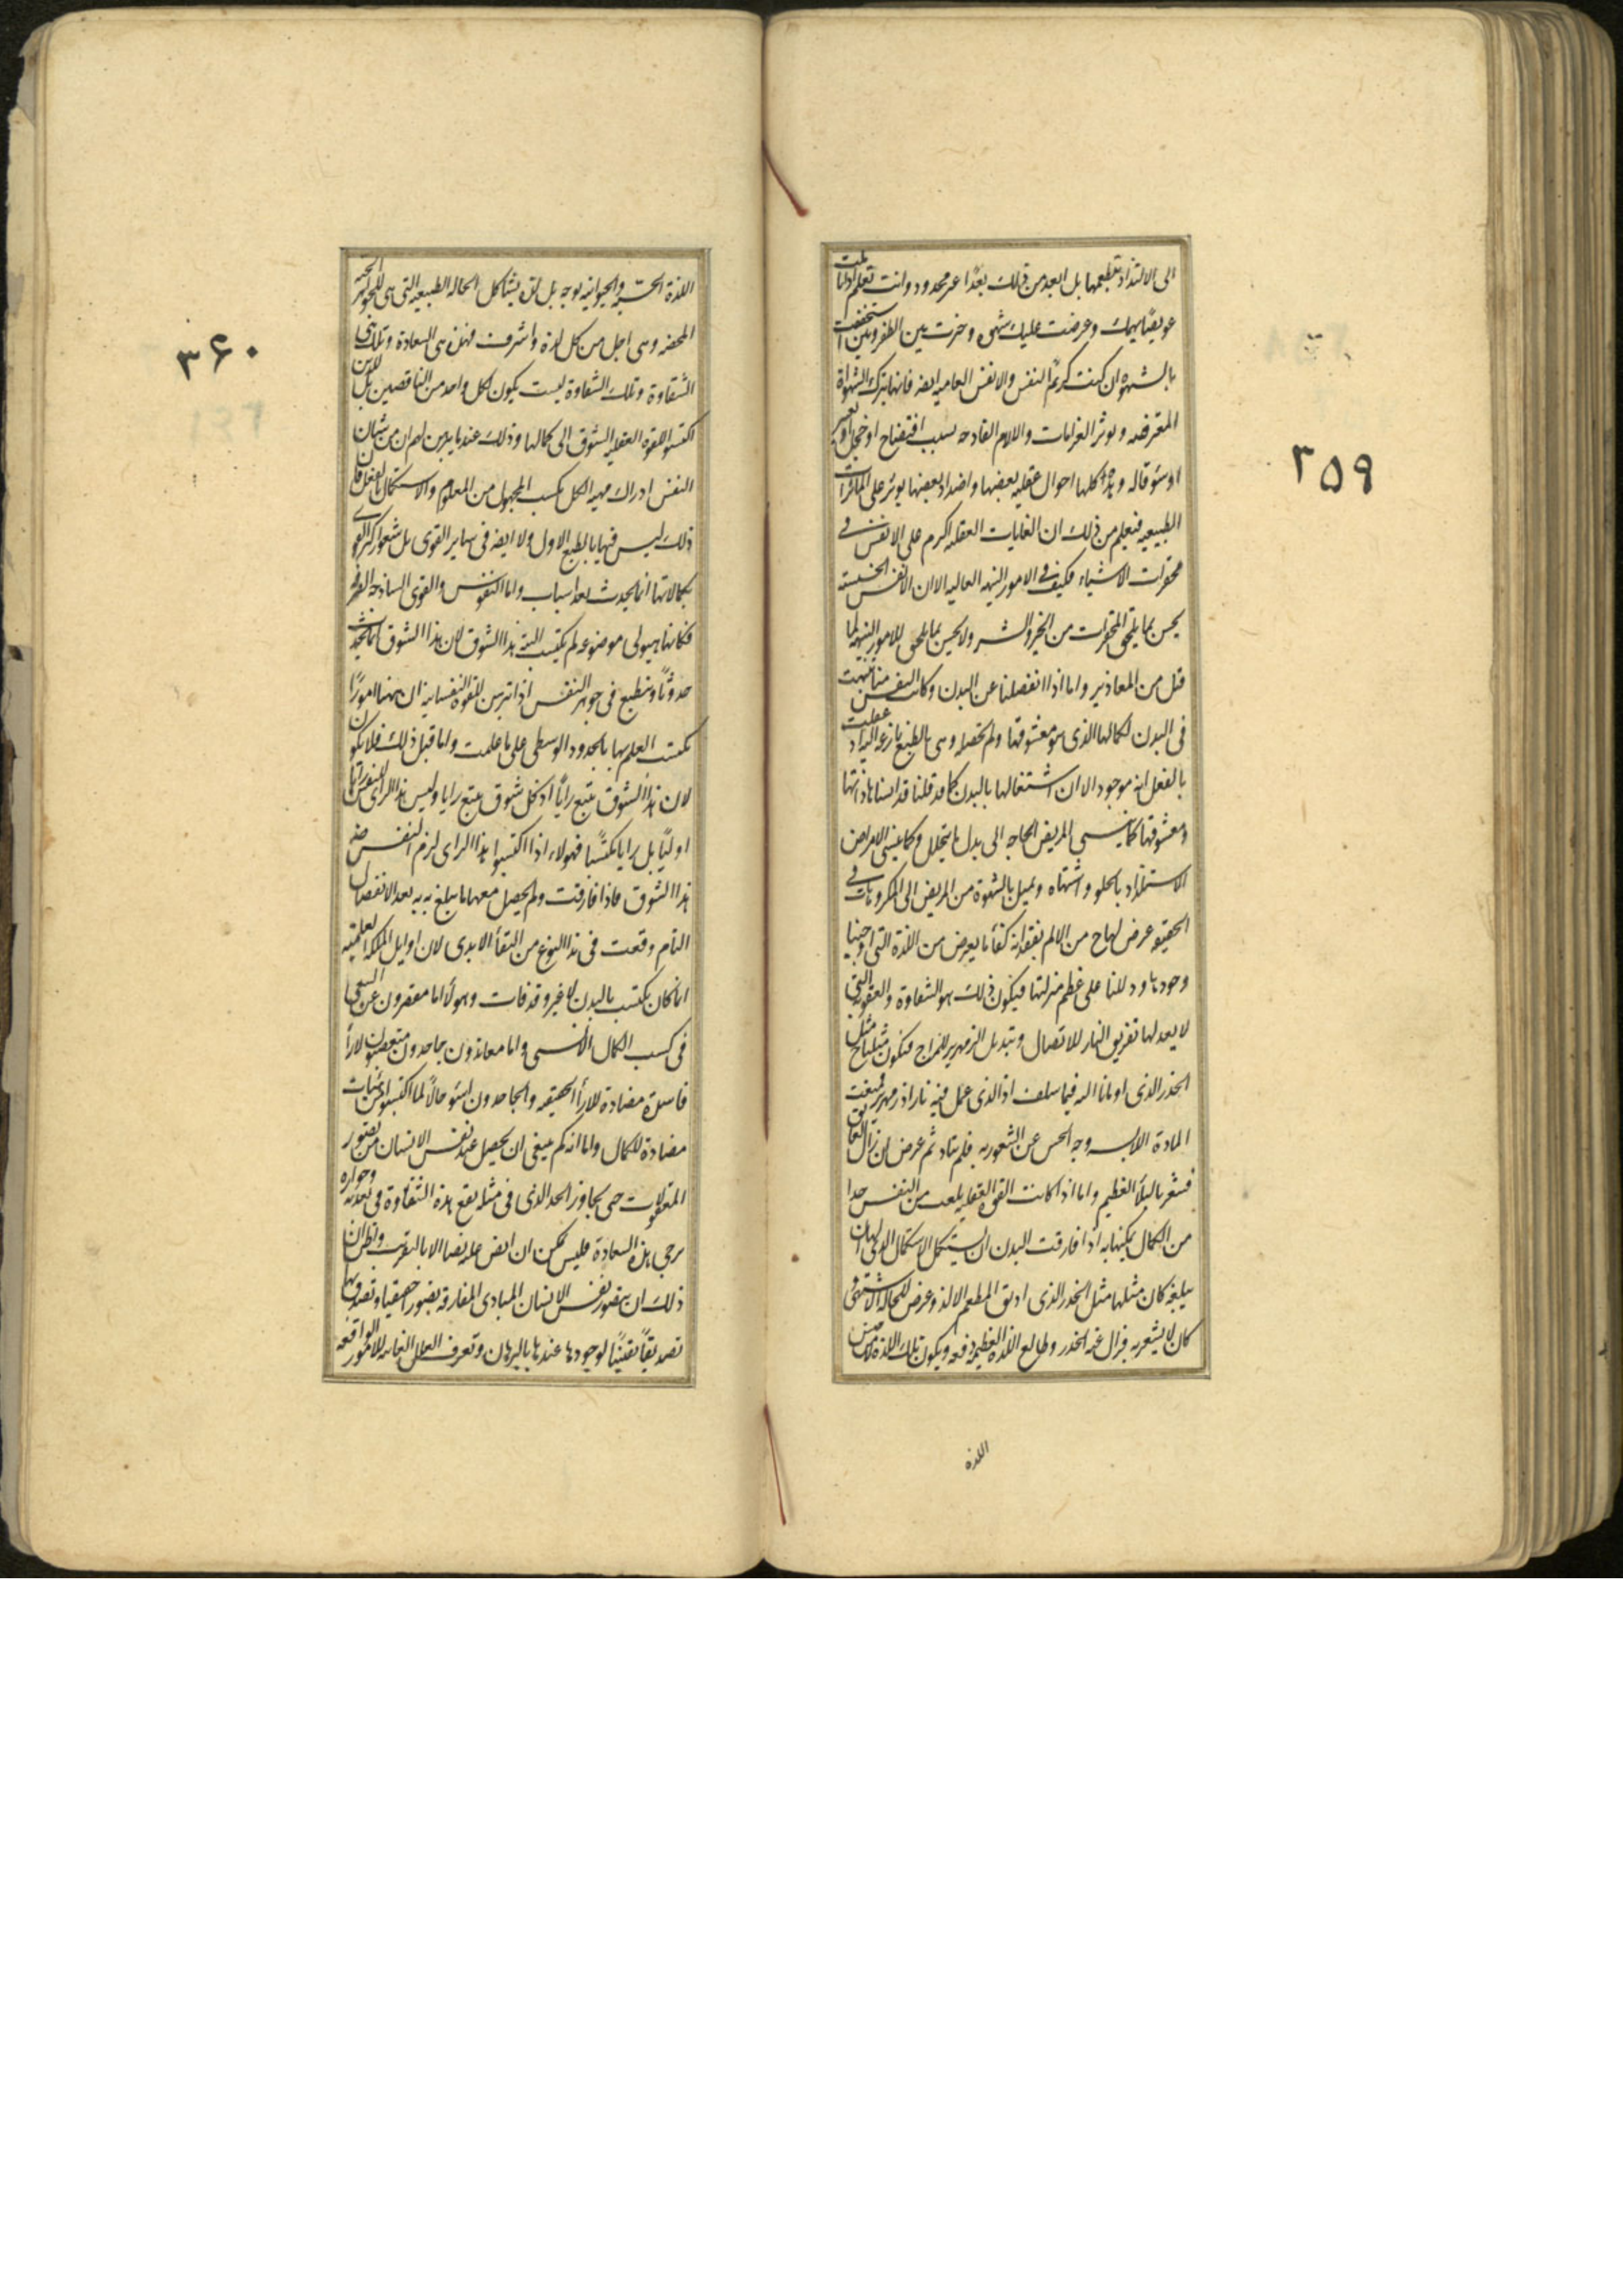 الى الالتذاذ بتطعمها بل ابعد من ذلك بعدًا غير محدود وانت تعلم اذا تاملت
عويصًا يهمك وعرضت عليك شهوة وخيرت بين الظفرين استخففت
بالشهوة ان كنت كريم النفس والانفس العامية ايضا فانها تترك الشهوات
المعترضه وتوثر الغرامات والالام الفادحه بسبب افتضاح او خجل او تعيير
او سوء قاله وهذه كلها احوال عقليه بعضها واضداد بعضها يوثر على الموثرات
الطبيعيه فيعلم من ذلك ان الغايات العقليه اكرم على الانفس فى
محقرات الاشياء فكيف فى الامور النبيهه العاليه الا ان الانفس الخسيسه
يحس بما يلحق المحقرات من الخير والشر ولا يحس بما يلحق الامور النبيهه لما
قيل من المعاذير واما اذا انفصلنا عن البدن وكانت النفس منا تنبهت
فى البدن لكمالها الذى هو معشوقها ولم تحصله وهى بالطبع نازعه اليه اذ عقلت
بالفعل انه موجود الا ان اشتغالها بالبدن كما قد قلنا قد انساها ذاتها
ومعشوقها كما ينسى المريض الحاجه الى بدل ما يتحلل وكما ينسى الامراض
الاستلذاذ بالحلو واشتهاه ويميل بالشهوة من المريض الى المكروهات فى
الحقيقه عرض لها ح من الالم بفقدانه كفأ ما يعرض من اللذة التى اوجبنا
وجودها ودللنا على عظم منزلتها فيكون ذلك هو الشقاوة والعقوبه التى
لا يعدلها تفريق النار للاتصال وتبديل الزمهرير للمزاج فيكون مثلنا ح مثل
الخدر الذى اومانا اليه فيما سلف او الذى عمل فيه نار او زمهرير فمنعت
المادة الملابسه وجه الحس عن الشعور به فلم يتاد ثم عرض ان زال العايق
فشعر بالبلأ العظيم واما اذا كانت القوة العقليه بلغت من النفس حدا
من الكمال يمكنها به اذا فارقت البدن ان يستكمل الاستكمال الذى لها ان
يبلغه كان مثلها مثل الخدر الذى اذيق المطعم الالذ وعرض للحاله الاشهى و
كان لا يشعر به فزال عنه الخدر وطالع اللذه العظيمه دفعه ويكون تلك اللذة لا من جنس
اللذه
٣٥٩
اللذة الحسيه والحيوانيه بوجه بل لذة يشاكل الحاله الطبيعيه التى هى للجواهر الحيه
المحضه وهى اجل من كل لذة واشرف فهذه هى السعادة وتلك هى
الشقاوة وتلك الشقاوة ليست يكون لكل واحد من الناقصين بل للذين
اكتسبوا للقوه العقليه الشوق الى كمالها وذلك عند ما يبرهن لهم ان من شان
النفس ادراك مهيه الكل بكسب المجهول من المعلوم والاستكمال بالفعل فان
ذلك ليس فيها بالطبع الاول ولا ايضا فى ساير القوى بل شعور اكثر القوى
بكمالاتها انما يحدث بعد اسباب واما النفوس والقوى الساذجه الصرفه
فكانها هيولى موضوعه لم يكتسب البته هذا الشوق لان هذا الشوق انما يحدث
حدوثًا وينطبع فى جوهر النفس اذا تبرهن للقوه النفسانيه ان ههنا امورًا
يكتسب العلم بها بالحدود الوسطى على ما علمت واما قبل ذلك فلا يكون
لان هذا الشوق يتبع رايًا اذ كل شوق يتبع رايا وليس هذا الراى للنفس رايا
اوليًا بل رايا مكتسبًا فهولاء اذا اكتسبوا هذا الراى لزم النفس ضرورة
هذا الشوق فاذا فارقت ولم يحصل معها ما يبلغ به بعد الانفصال
التام وقعت فى هذا النوع من الشقأ الابدى لان اوايل الملكه العلميه
انما كان يكتسب بالبدن لا غير وقد فات وهولأ اما مقصرون عن السعى
فى كسب الكمال الانسى واما معاندون جاحدون متعصبون لارأ
فاسدة مضادة للارأ الحقيقه والجاحدون اسوء حالًا لما اكتسبوا من هيئات
مضادة للكمال واما انه كم ينبغى ان يحصل عند نفس الانسان من تصور
المعقولات حتى يجاوز الحد الذى فى مثله يقع هذه الشقاوة وفى تعديه وجوازه
يرجى هذه السعادة فليس يمكن ان انص عليه نصا الا بالتقريب واظن ان
ذلك ان يتصور نفس الانسان المبادى المفارقه تصورًا حقيقيا وتصدق بها
تصديقًا يقينيًا لوجودها عندها بالبرهان وتعرف العلل الغائيه للامور الواقعه
٣۶٠